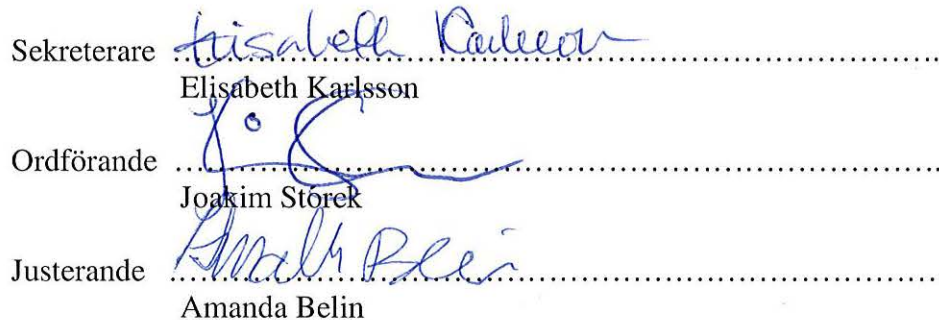 Sekreterare Elisabeth Karlsson
Elisabeth Karlsson
Ordförande
Joakim Storck
Justerande Amanda Belin
Amanda Belin